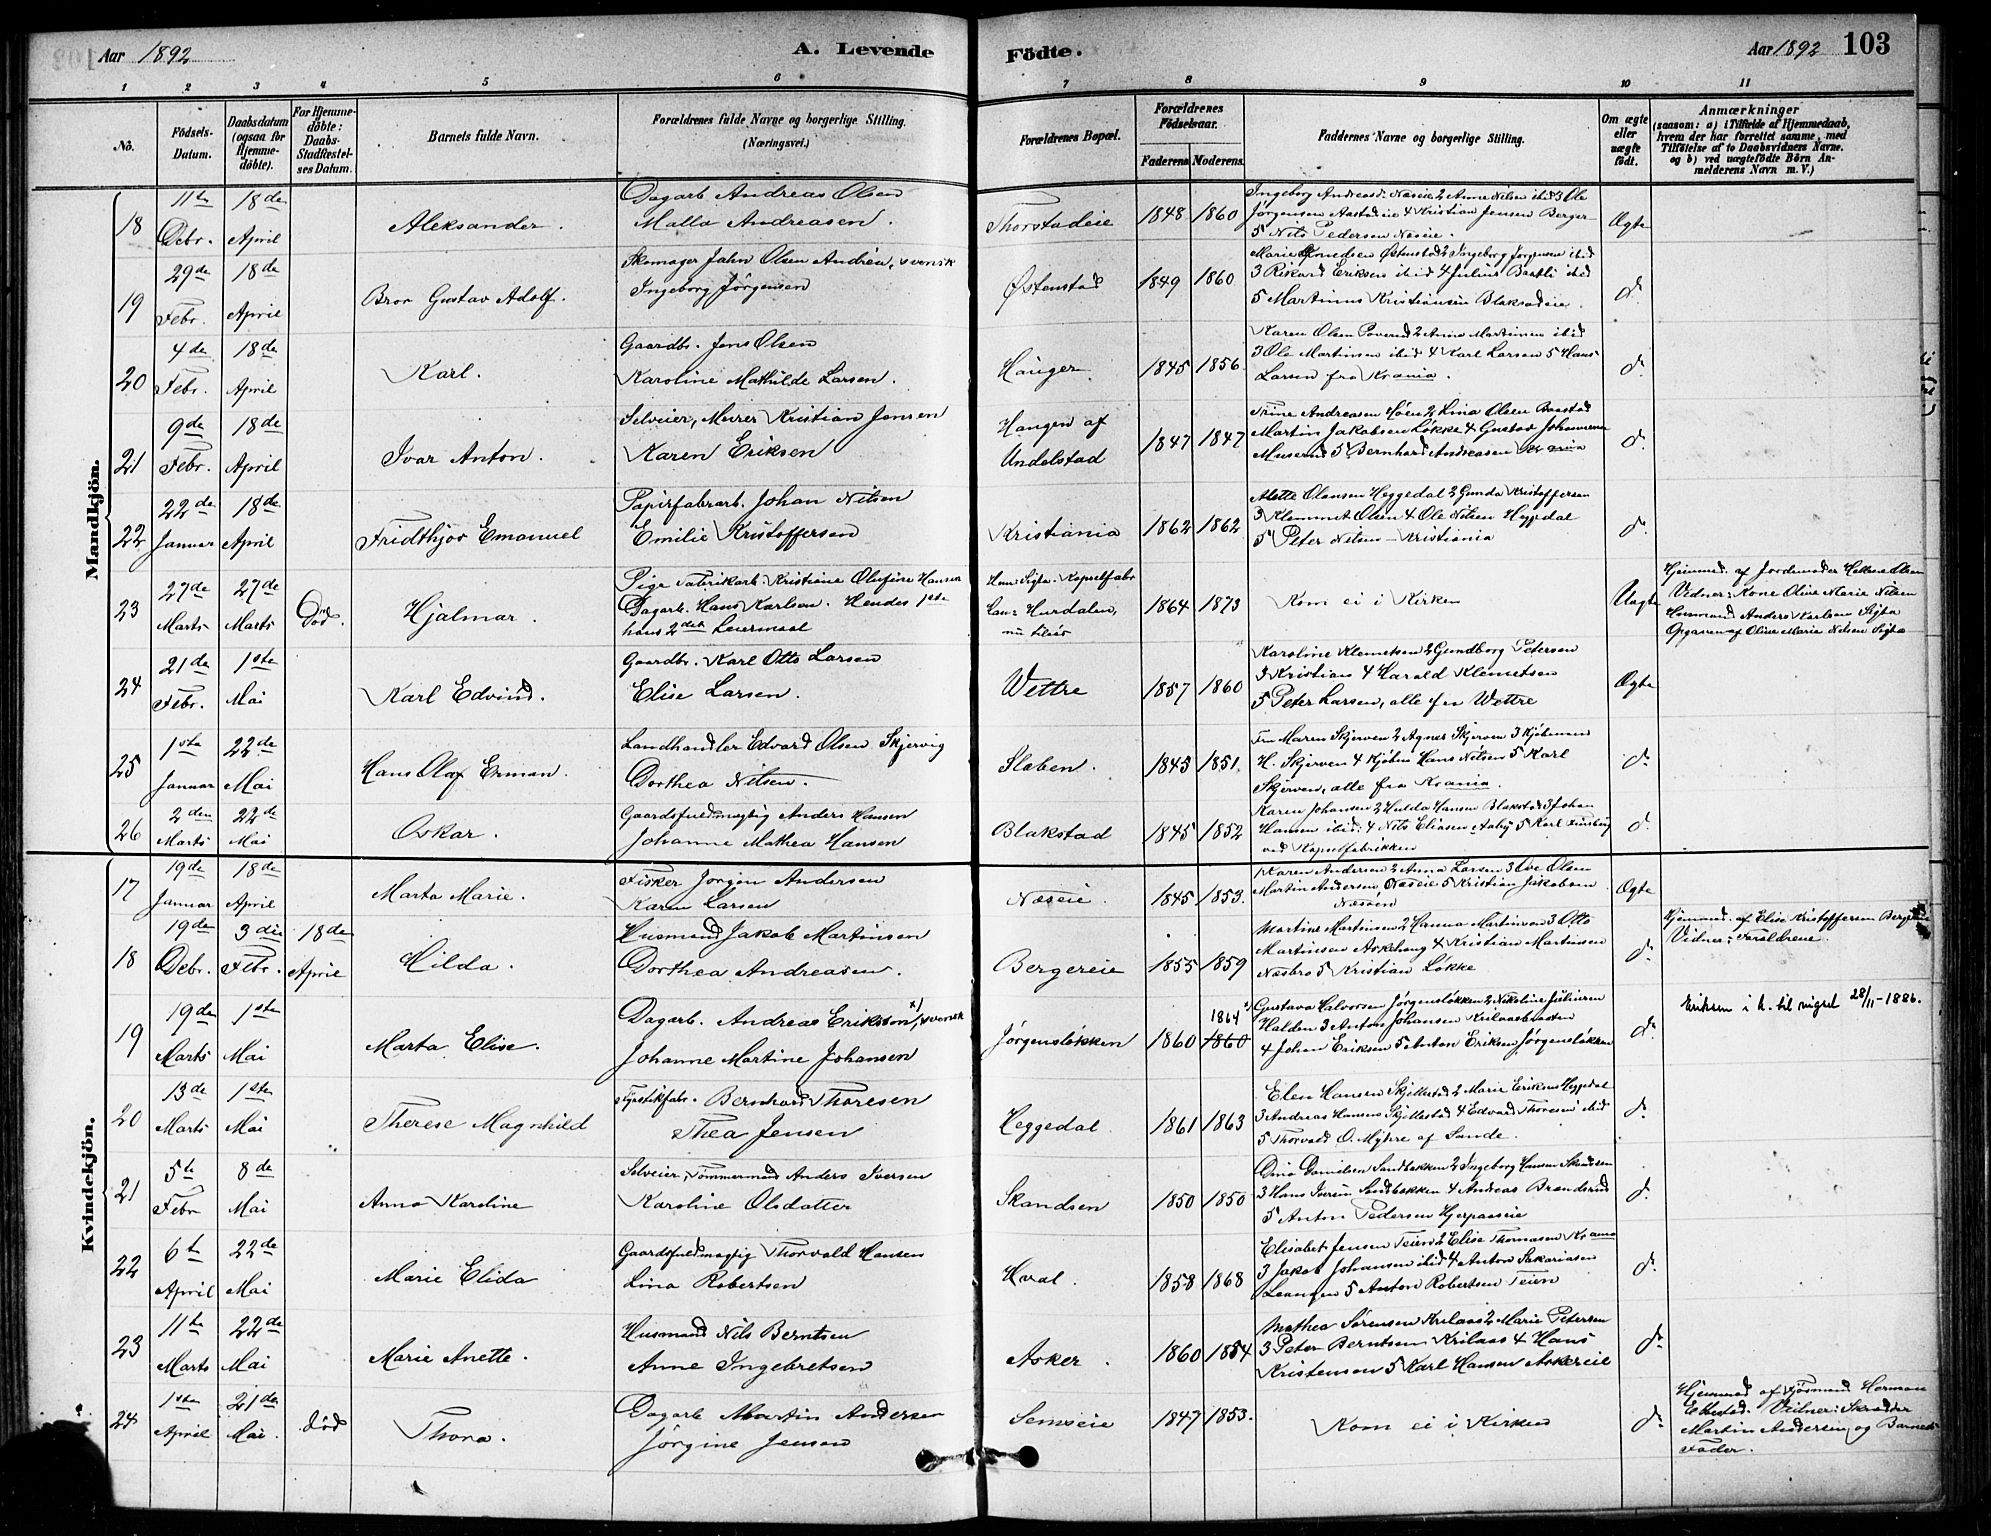 Aar 1892 A. Levende Födte. Aar 1892 103
1 2 3 4 5 6 7 8 9 10 11
No.
Födsels-Datum.
Daabsdatum (ogsaa før Hjemmedöbte).
For Hjemmedöbte: Daabs-Stadfæstelses Datum.
Barnets fulde Navn.
Forældrenes fulde Navne og borgerlige Stilling. (Næringsvei.)
Forældrenes Bopæl.
Forældrenes Födselsaar. Faderens Moderens.
Faddernes Navne og borgerlige Stilling.
Om ægte eller uægte født.
Anmærkninger (saasom: a) i Tilfælde af Hjemmedaab, hvem der har forrettet samme, med Tilföielse af to Daabsvidners Navne. og b) ved uægtefödte Börn Anmelderens Navn m. V.)
Mandkjön.
18 11te Debr. 18de April Aleksander. Dagarb Andreas Olsen
Malla Andreasen. Thorstadeie 1848 1860 Ingeborg Andreasd. Næseie 2 Anne Nilsen ibid 3 Ole
Jørgensen Aastadeie 4 Kristian Jensen Berger
5 Nils Pedersen Næseie. Ægte
19 29de Febr. 18de April Bror Gustav Adolf. Skomager Jahn Olsen Andrén, svensk
Ingeborg Jørgensen Østenstad 1849 1860 Marie Knudsen Østenstad 2 Ingeborg Jørgensen ibid
3 Rikard Eriksen ibid 4 Julius Bratli ibid
5 Martinius Kristiansen Blakstadeie. do
20 4de Febr. 18de April Karl. Gaardbr. Jens Olsen
Karoline Mathilde Larsen. Hauger 1845 1856. Karen Olsen Poverud 2 Anna Martinsen ibid
3 Ole Martinsen ibid 4 Karl Larsen 5 Hans
Larsen fra Krania. do
21 9de Febr. 18de April Ivar Anton. Selveier, Murer Kristian Jensen
Karen Eriksen Haugen af
Undelstad 1847 1847 Trine Andreasen Høen 2 Lina Olsen Baastad
Martin Jakobsen Løkke 4 Gustav Johannesen
Muserud 5 Bernhard Andreasen Krania do
22 22de Januar 18de April Fridthjov Emanuel Papirfabrarb. Johan Nilsen
Emilie Kristoffersen Kristiania 1862 1862 Alette Olansen Heggedal 2 Gunda Kristoffersen
3 Klemmet Olsen 4 Ole Nilsen Heggedal
5 Peter Nilsen Kristiania do
23 27de Marts 27de Marts Død. Hjalmar. Pige Fabrikarb. Kristiane Olufine Hansen
Dagarb. Hans Karlsen. Hendes 1ste
hans 2det Leiermaal Hun: Sigta. Kapselfabr
Han: Hurdalen,
1864 1873 Kom ei i Kirken Uægte Hjemmed. af Jordemoder Helene Olsen
Vidner: Kone Olive Marie Nilsen
Husmand Anders Karlsen Sigta
Opgaven af Olive Marie Nilsen Sigta
24 21de Febr. 1ste Mai Karl Edvind. Gaardbr. Karl Otto Larsen
Elise Larsen. Wettre 1857 1860 Karoline Klemetsen 2 Gundborg Petersen
3 Kristian 4 Harald Klemetsen
5 Peter Larsen, alle fra Wettre Ægte
25 1ste Januar 22de Mai Hans Olaf Enman. Landhandler Edvard Olsen Skjervig
Dorthea Nilsen. Slaben. 1845 1851. Fru Maren Skjerven 2 Agnes Skjerven 3 Kjøbmand
H. Skjerven 4 Kjøbm Hans Nilsen 5 Karl
Skjerven, alle fra Krania. do
26 2den Marts 22de Mai Oskar. Gaardsfuldmægtig Anders Hansen
Johanne Mathea Hansen Blakstad 1845 1852 Karen Johansen 2 Hulda Hansen Blakstad 3 Johan
Hansen ibid. 4 Nils Eliasen Aaby 5 Karl
ved Kapselfabrikken do
Kvindekjön.
17 19de Januar 18de April Marta Marie. Fisker Jørgen Andersen
Karen Larsen Næseie. 1845 1853. Karen Andersen 2 Anna Larsen 3 Ove Olsen
Martin Andersen, Næseie 5 Kristian Jakobsen
Næsøen Ægte
18 19de Debr. 3die Febr. 18de April Hilda. Husmand Jakob Martinsen
Dorthea Andreasen. Bergereie 1855 1859 Martine Martinsen 2 Hanna Martinsen 3 Otto
Martinsen Askehaug 4 Kristian Martinsen
Næsbro 5 Kristian Løkke do Hjemmed. af Elise Kristoffersen
Vidner: Forældrene.
19 19de Marts 1ste Mai Marta Elise. Dagarb. Andreas Eriksson x), svensk
Johanne Martine Johansen Jørgensløkken 1860 1864 x) 1860 Gustava Halvorsen Jørgensløkken 2 Nikoline Juliusen
Halden 3 Anton Johansen Krilaasbraaten
4 Johan Eriksen 5 Anton Eriksen Jørgensløkken do Eriksen i k. til vigsel 28/11-1886.
20 13de Marts 1ste Mai Therese Magnhild Fyrstikfabr. Bernhard Thoresen
Thea Jensen Heggedal. 1861 1863 Elen Hansen Skjellestad 2 Marie Eriksen Heggedal
3 Andreas Hansen Skjellestad 4 Edvard Thoresen ibid
5 Thorvald O. Myhre af Sande. do
21 5te Febr 8de Mai Anna Karoline Selveier, Tømmermand Anders Iversen
Karoline Olsdatter Skandsen 1850 1850 Dina Danielsen Sandbakken 2 Ingeborg Hansen Skandsen
3 Hans Iversen Sandbakken 4 Andreas Brandsrud
5 Anton Pedersen Hjerpaaseie do
22 6te April 22de Mai Marie Elida Gaardsfuldmægtig Thorvald Hansen
Lina Robertsen Hval. 1858 1868 Elisabet Jensen Teien 2 Elise Thomasen Krania
3 Jakob Johansen ibid 4 Anton Sakariasen
Leangen 5 Anton Robertsen Teien do
23 11te Marts 22de Mai Marie Anette. Husmand Nils Berntsen
Anne Ingebretsen Asker. 1860 1854 Mathea Sørensen Krilaas 2 Marie Petersen
3 Peter Berntsen Krilaas 4 Hans
Kristensen 5 Karl Hansen Askereie do
24 1ste April 21de Mai. død Thora. Dagarb Martin Andersen
Jørgine Jensen Semseie 1847 1853. Kom ei i Kirken do Hjemmed af Herman
Vidner: Skrædder
Martin Andersen og Barnets
Fader.